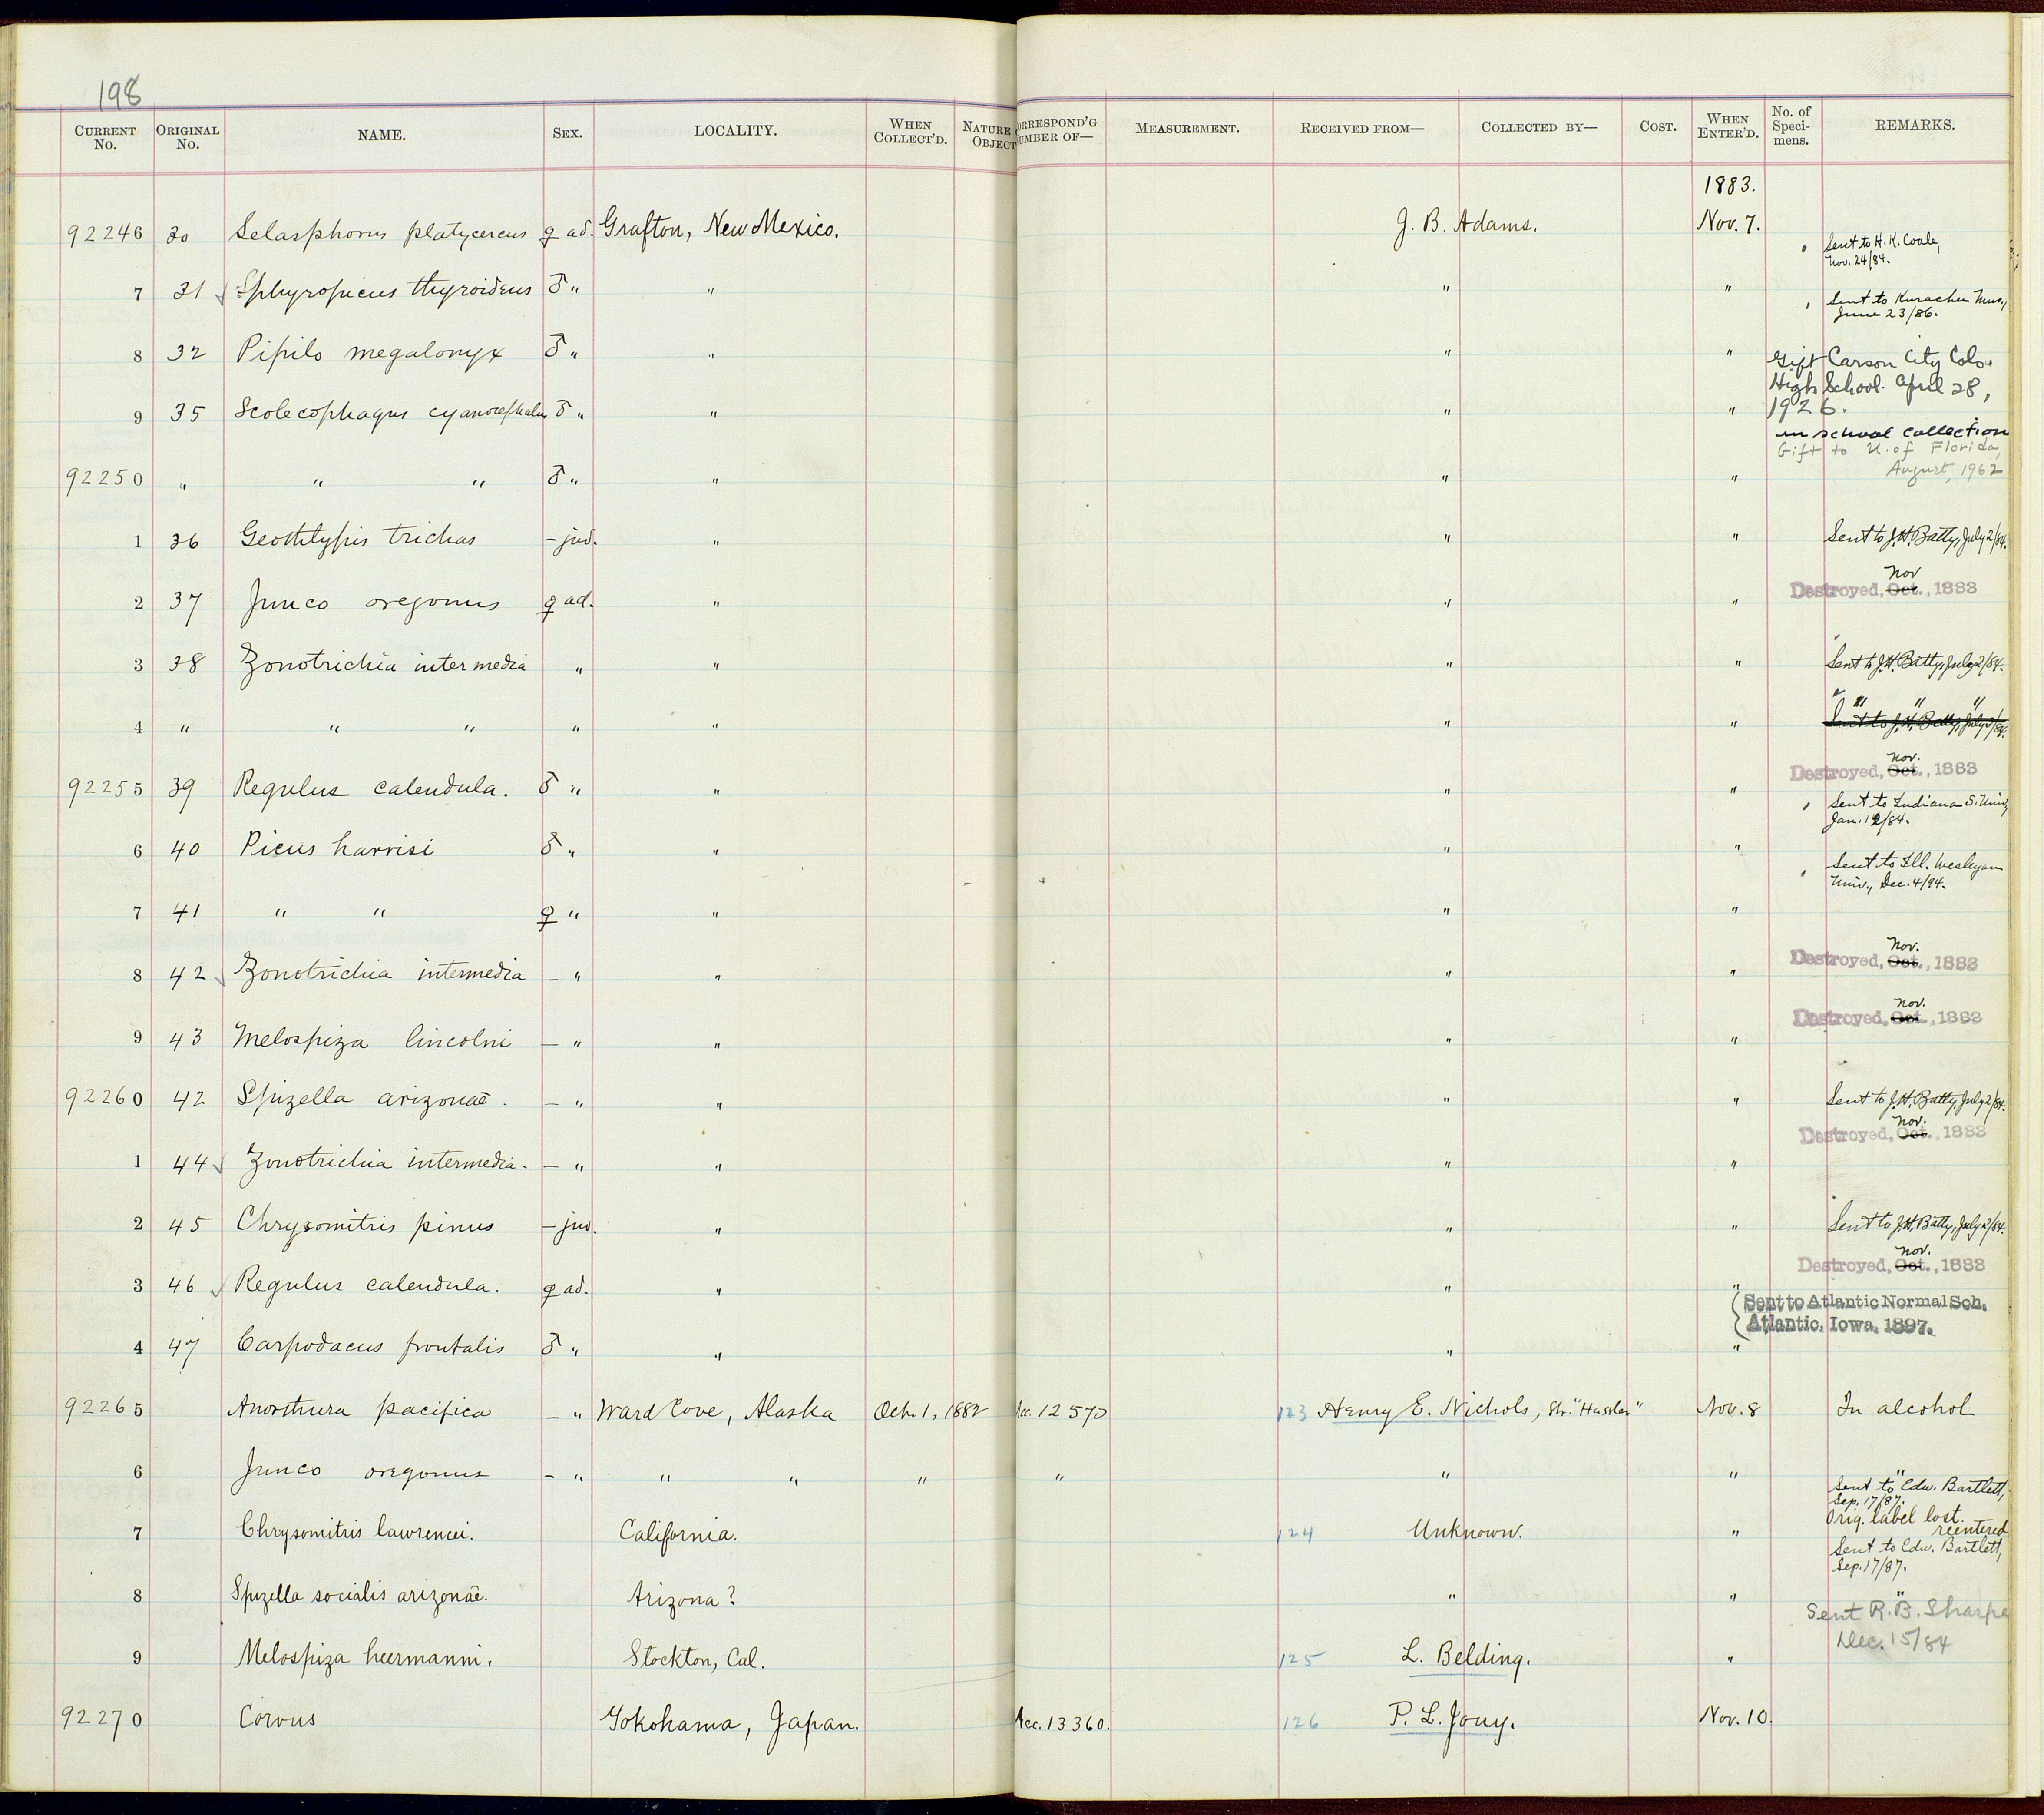 198
CURRENT No. ORIGINAL No. NAME. SEX. LOCALITY. WHEN COLLECT'D. NATURE OBJECT ORRESPOND'G UMBER OF— MEASUREMENT. RECEIVED FROM— COLLECTED BY— COST. WHEN ENTER'D. No. of Speci-mens. REMARKS.
1883.
92246 30 Selasphorus platycercus ♀ ad. Grafton, New Mexico. J. B. Adams. Nov. 7.
Sent to H. K. Coale,
Nov. 24/84.
7 31 Sphyropicus thyroideus ♂ " " " "
Sent to Kurachee Mus,
June 23/86.
8 32 Pipilo megalonyx ♂ " " " "
Gift Carson City Colo.
High School. April 28,
9 35 Scolecophagus cyanocephalus ♂ " " " "
1926.
in school collection
Gift to U. of Florida,
August, 1962
92250 " " " ♂ " " " "
1 36 Geothlypis trichas – juv. " " " Sent to J. H. Batty, July 2/84.
Nov
Destroyed, Oct., 1883
2 37 Junco oregonus ♀ ad. " " "
3 38 Zonotrichia intermedia " " " " Sent to J. H. Batty, July 2/84.
" " "
4 " " " " " " " Sent to J. H. Batty, July 2/84.
Nov.
Destroyed, Oct., 1883
92255 39 Regulus calendula. ♂ " " " "
Sent to Indiana S. Univ,
Jan. 12/84.
6 40 Picus harrisi ♂ " " " "
Sent to Ill. Wesleyan
Univ., Dec. 4/94.
7 41 " " ♀ " " " "
Nov.
Destroyed, Oct., 1883
8 42 Zonotrichia intermedia – " " " "
Nov.
Destroyed, Oct., 1883
9 43 Melospiza lincolni – " " " "
92260 42 Spizella arizonae. – " " " " Sent to J. H. Batty, July 2/84.
Nov.
Destroyed, Oct., 1883
1 44 Zonotrichia intermedia. – " " " "
2 45 Chrysomitris pinus – juv. " " " Sent to J. H. Batty, July 2/84.
Nov.
Destroyed, Oct., 1883
3 46 Regulus calendula. ♀ ad. " " "
Sent to Atlantic Normal Sch.
Atlantic, Iowa, 1897.
4 47 Carpodacus frontalis ♂ " " " "
92265 Anorthura pacifica – " Ward Cove, Alaska Oct. 1, 1882 Acc. 12570 123 Henry E. Nichols, Str. "Hassler" Nov. 8 In alcohol
6 Junco oregonus – " " " " " " " "
Sent to Edw. Bartlett,
Sep. 17/87.
Orig. label lost.
reentered
7 Chrysomitris lawrencei. California. 124 Unknown. "
Sent to Edw. Bartlett,
Sep. 17/87.
8 Spizella socialis arizonae. Arizona? " " "
Sent R. B. Sharpe
Dec. 15/84
9 Melospiza heermanni. Stockton, Cal. 125 L. Belding. "
92270 Corvus Yokohama, Japan. Acc. 13360. 126 P. L. Jouy. Nov. 10.